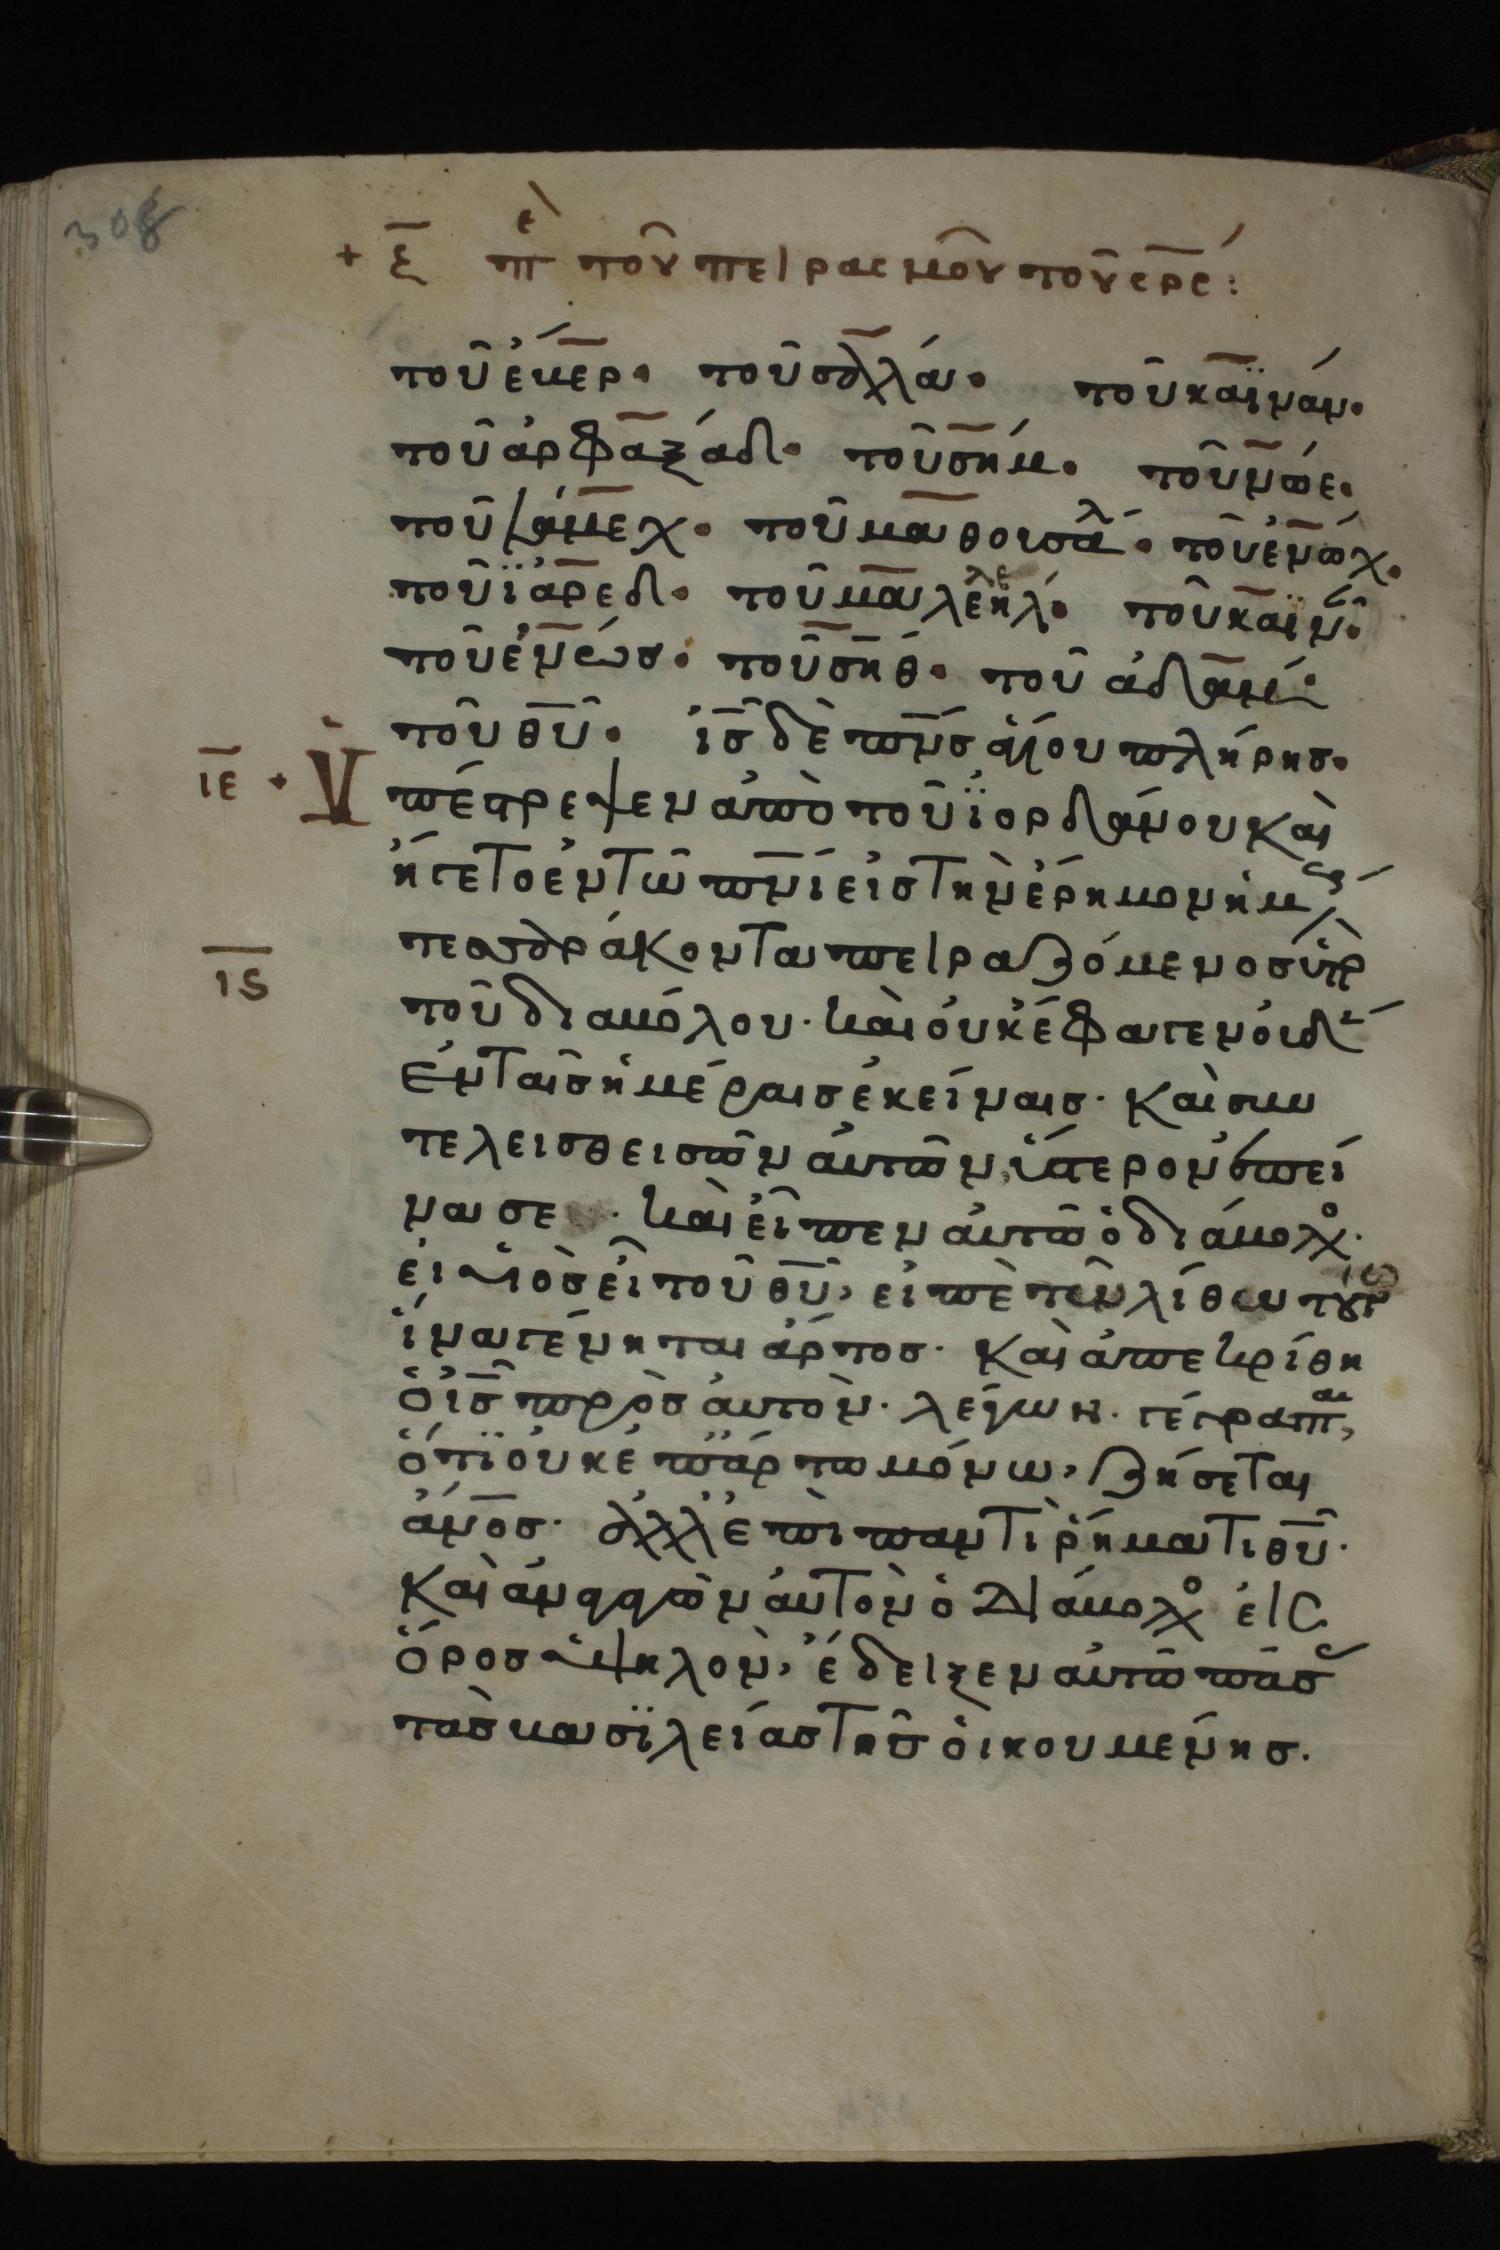 308
+ ξ̅ πε τοῦ πειρασμοῦ τοῦ σρς:
τοῦ ἔβερ· τοῦ σαλλά· τοῦ καϊνάν·
τοῦ ἀρφαξάδ· τοῦ σήμ· τοῦ νῶε·
τοῦ λάμεχ· τοῦ μαθουσάλ· τοῦ ἐνώχ·
τοῦ ϊάρεδ· τοῦ μαλελεήλ· τοῦ καϊν·
τοῦ ἐνώσ· τοῦ σήθ· τοῦ ἀδάμ·
τοῦ θ̅υ̅· ι̅σ̅ δὲ π̅ν̅σ̅ ἁγίου πλήρησ·
ι̅ε̅ + Ὑ
πέστρεψεν ἀπὸ τοῦ ϊορδάνου καὶ
ἤγετο ἐν τῶ π̅ν̅ι̅ εἰσ τὴν ἔρημον ἡμ
τεσσαράκοντα πειραζόμενοσ ὑπ
ι̅ϛ̅
τοῦ διαβόλου· καὶ οὐκ ἔφαγεν οὐδ
ἐν ταῖσ ἡμέραισ ἐκείναισ· καὶ συν
τελεισθεισῶν αὐτῶν, ὕστερον ἐπεί
νασε· καὶ εἶπεν αὐτῶ ὁ διάβολο·
εἰ υἱὸσ εἶ τοῦ θ̅υ̅, εἰπὲ τῶ λίθω τουτ
ἵνα γένηται ἄρτοσ· καὶ ἀπεκρίθη
ὁ ι̅σ̅ πρὸσ αὐτὸν· λέγων· γέγραπται,
ὅτϊ οὐκ ἐπ ἄρτω μόνω, ζήσεται
ἄ̅ν̅ο̅σ̅· ἀλλ ἐπὶ παντὶ ῥήματι θ̅υ̅·
καὶ ἀναγαγὼν αὐτὸν ὁ διάβολο εἰσ
ὄροσ ὑψηλὸν, ἔδειξεν αὐτῶ πάσ
τὰσ βασϊλείασ τῆσ οἰκουμένησ·